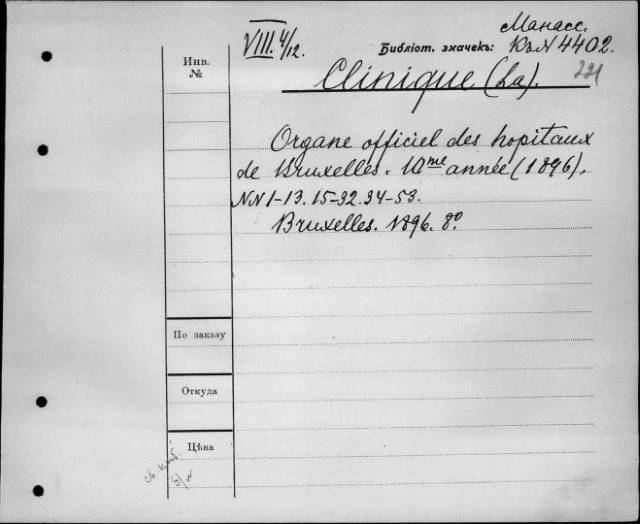 VIII. 4/12.
Манасс.
Библіот. значекъ: К.в.N 4402.
221
Инв.
№
Clinique (La).
Organe officiel des hopitaux
de Bruxelles. 10me année (1896).
NN 1-13. 15-32. 34-53.
Bruxelles. 1896. 8º.
По заказу
Откуда
Цѣна
б/н